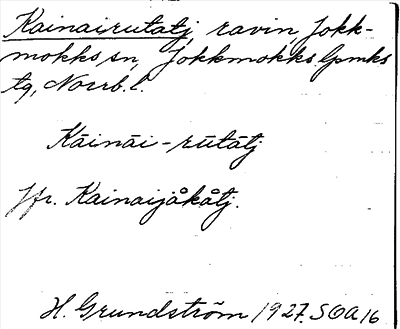 Kainairutatj, ravin, Jokk-
mokks sn, Jokkmokks lpmks
tg, Norrb. l.
Kāināi-rūtātj
Jfr. Kainaijåkåtj.
H. Grundström 1927. SOA 16